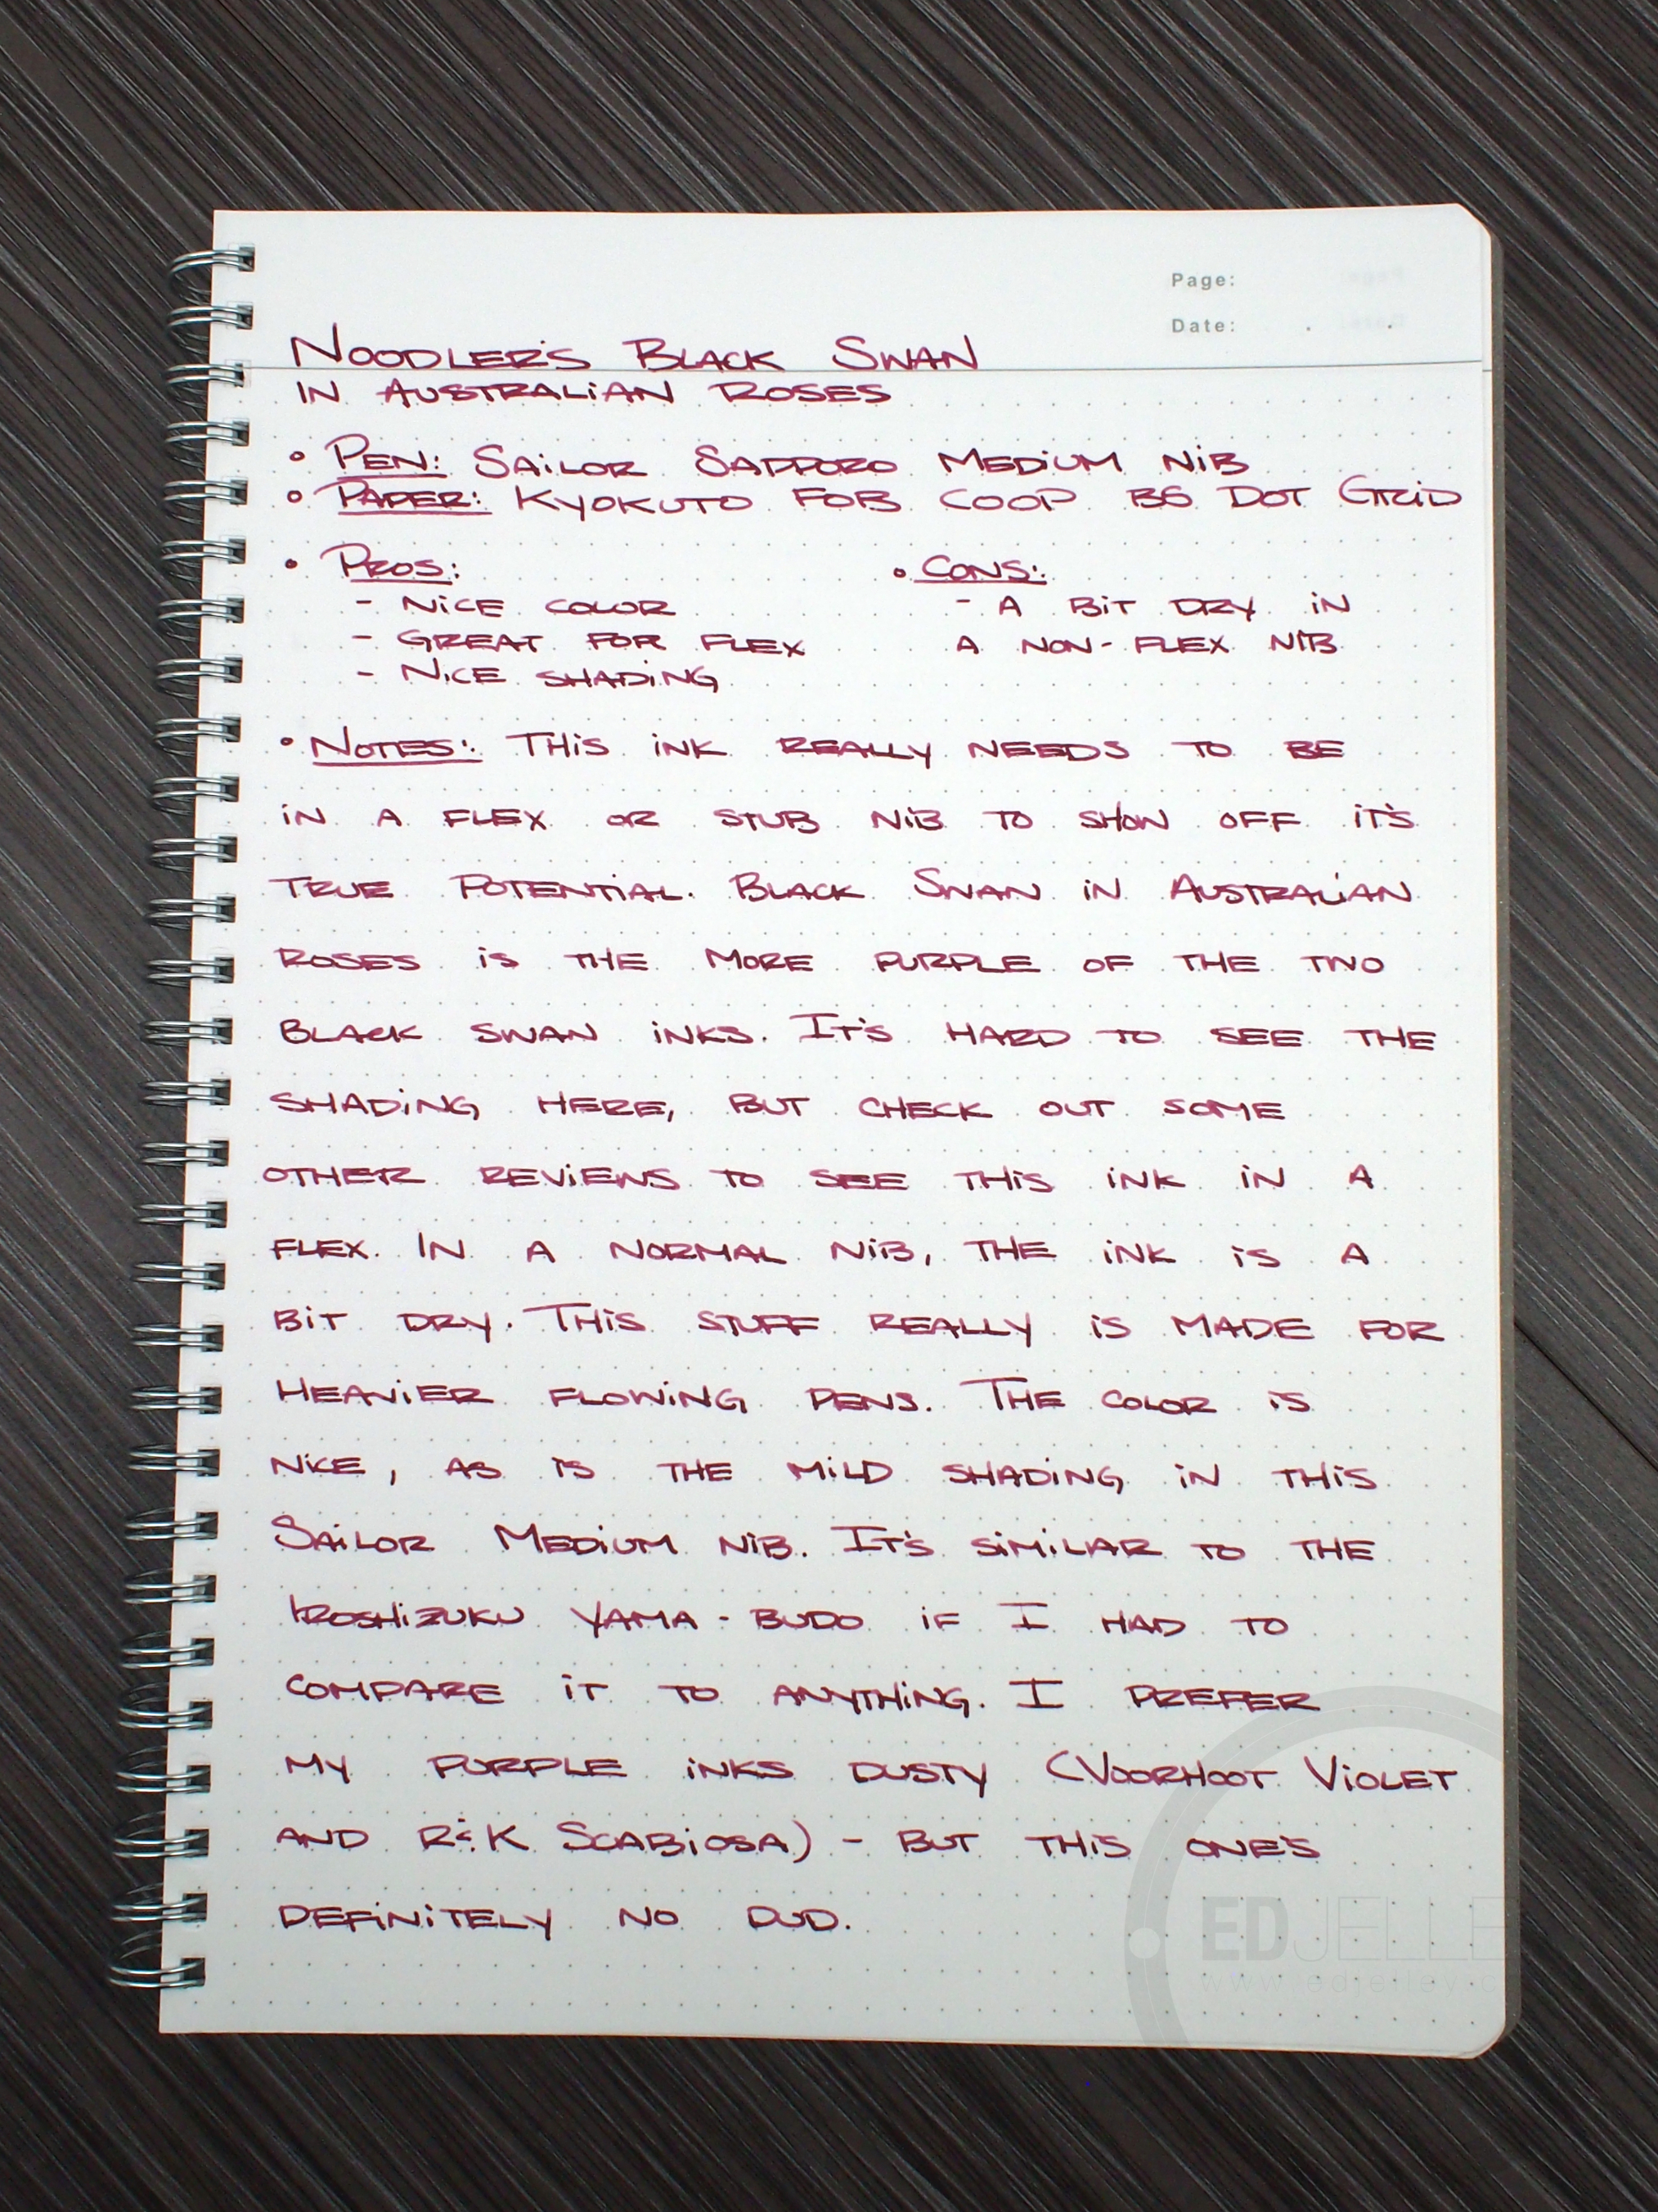 Page:
Date: . .
NOODLER'S BLACK SWAN
IN AUSTRALIAN ROSES
• PEN: SAILOR SAPPORO MEDIUM NIB
• PAPER: KYOKUTO FOB COOP B5 DOT GRID
• PROS: • CONS:
- NICE COLOR - A BIT DRY IN
- GREAT FOR FLEX A NON-FLEX NIB
- NICE SHADING
• NOTES: THIS INK REALLY NEEDS TO BE
IN A FLEX OR STUB NIB TO SHOW OFF IT'S
TRUE POTENTIAL. BLACK SWAN IN AUSTRALIAN
ROSES IS THE MORE PURPLE OF THE TWO
BLACK SWAN INKS. IT'S HARD TO SEE THE
SHADING HERE, BUT CHECK OUT SOME
OTHER REVIEWS TO SEE THIS INK IN A
FLEX. IN A NORMAL NIB, THE INK IS A
BIT DRY. THIS STUFF REALLY IS MADE FOR
HEAVIER FLOWING PENS. THE COLOR IS
NICE, AS IS THE MILD SHADING IN THIS
SAILOR MEDIUM NIB. IT'S SIMILAR TO THE
IROSHIZUKU YAMA-BUDO IF I HAD TO
COMPARE IT TO ANYTHING. I PREFER
MY PURPLE INKS DUSTY (VOORHOOT VIOLET
AND R&K SCABIOSA) - BUT THIS ONE'S
DEFINITELY NO DUD.
EDJELLE
www.edjelley.c